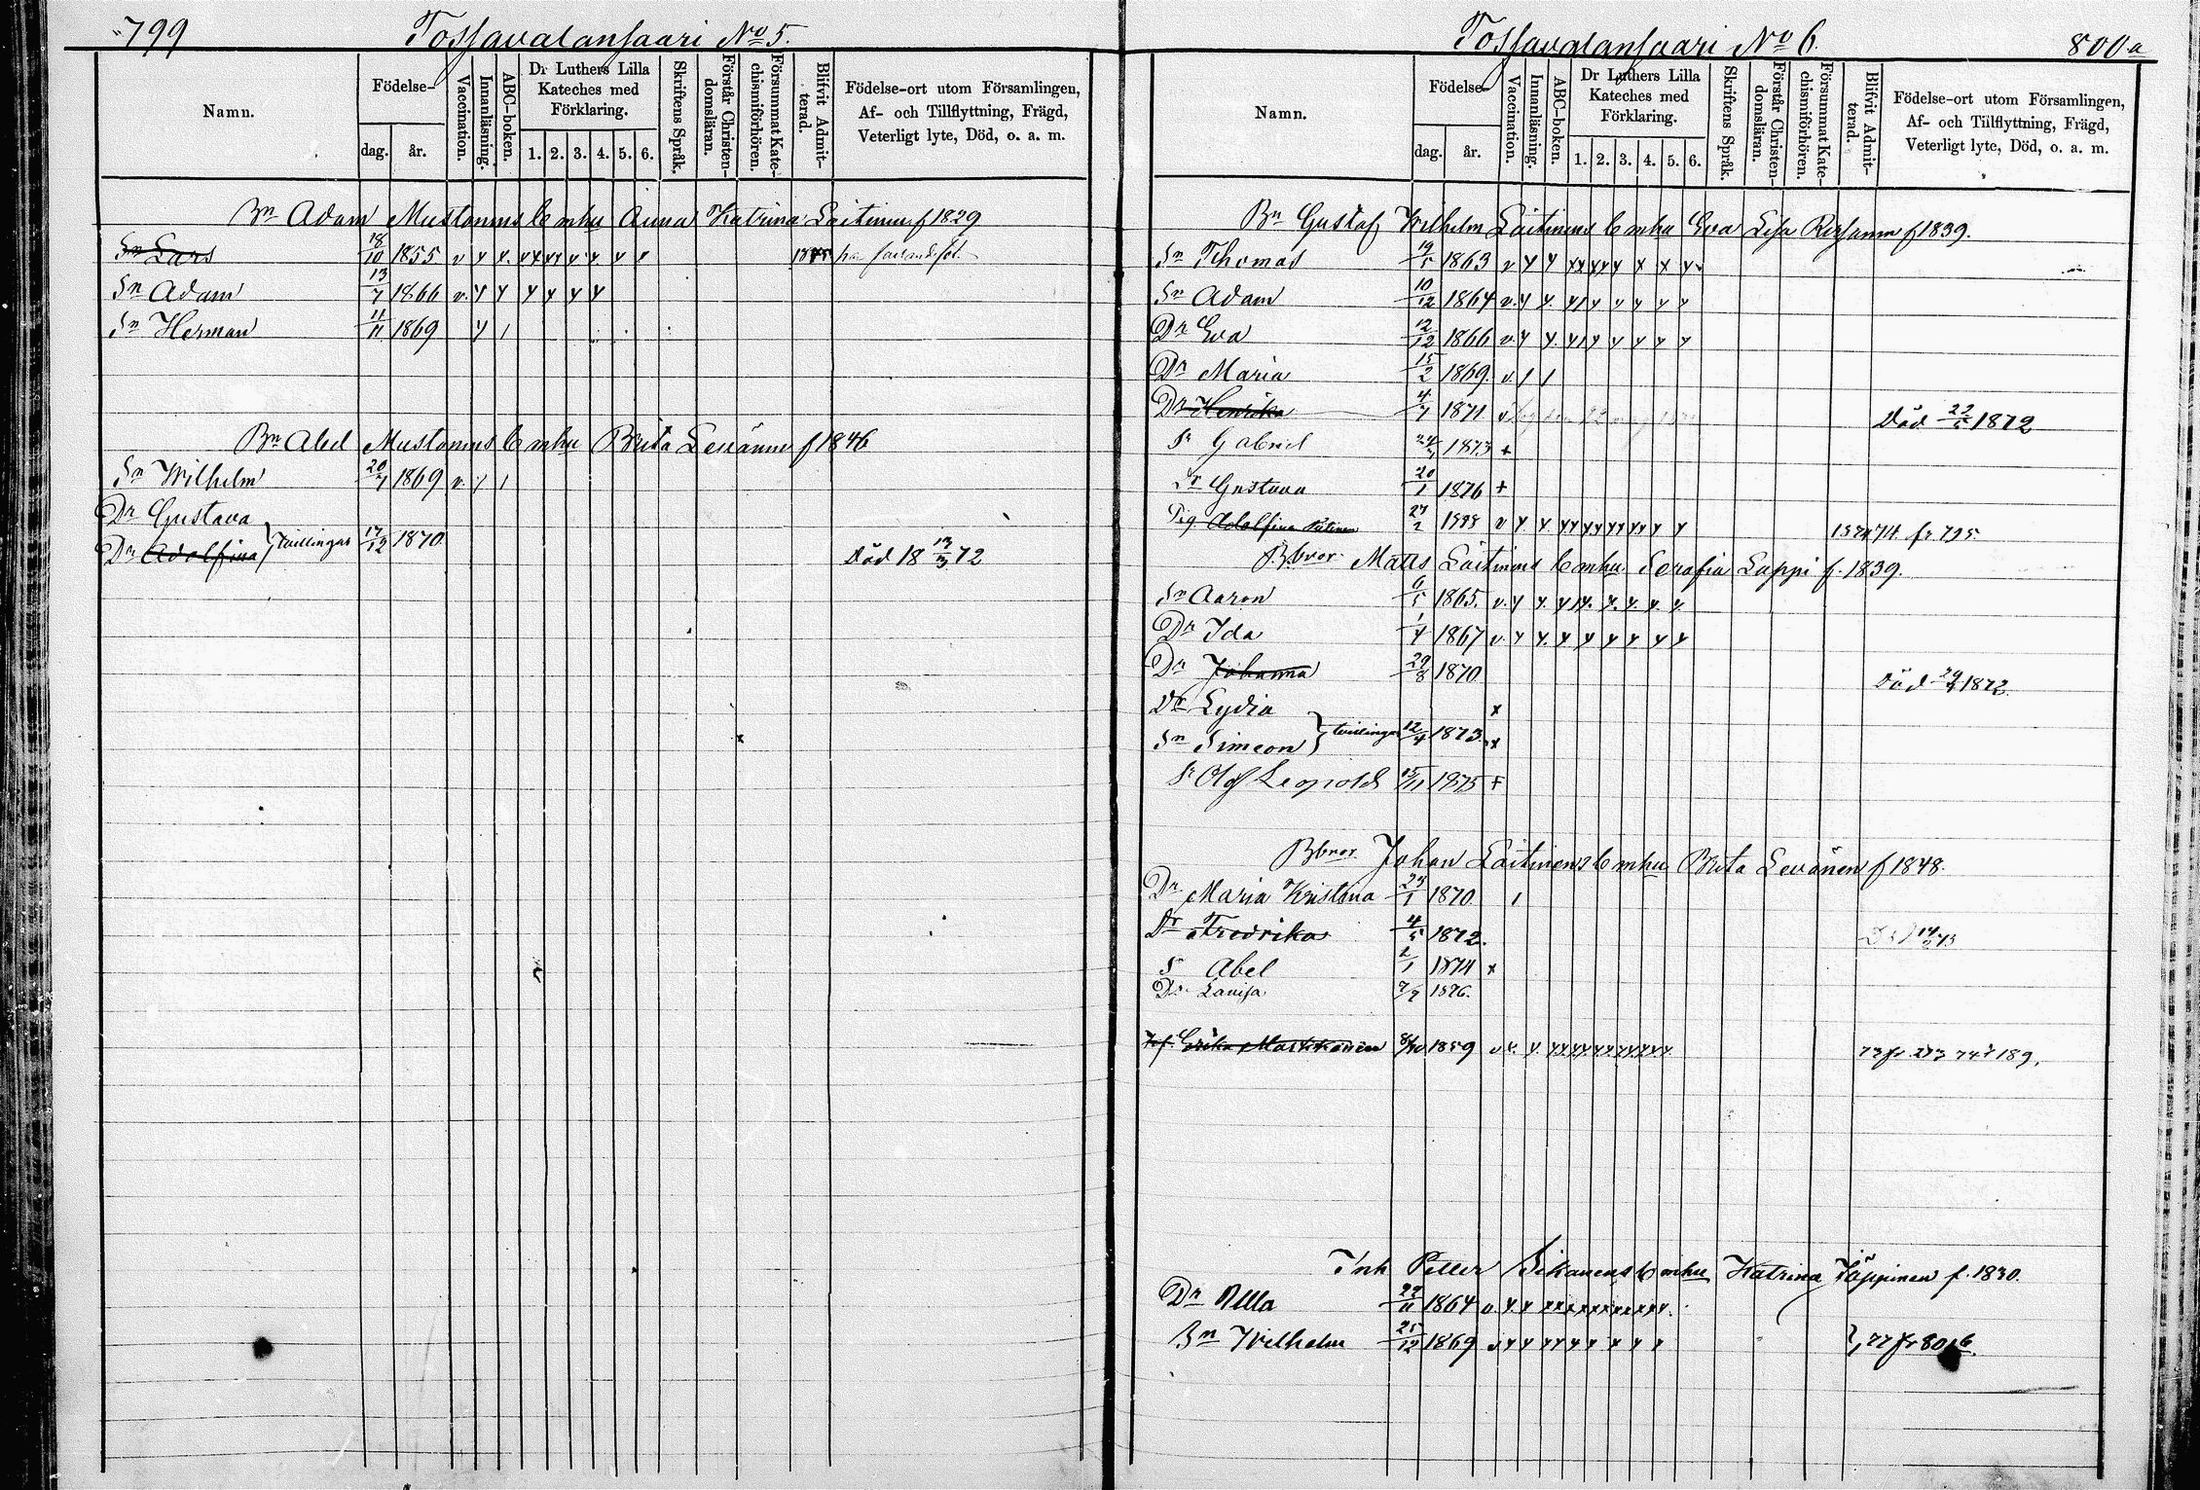 799
Tossavalansaari No 5.
Namn.
Födelse-
dag.
år.
Vaccination.
Innanläsning.
ABC-boken.
Dr Luthers Lilla
Kateches med
Förklaring.
1. 2. 3. 4. 5. 6.
Skriftens Språk.
Förstår Christen-
domsläran.
Försummat Kate-
chismiförhören.
Blifvit Admit-
terad.
Födelse-ort utom Församlingen,
Af- och Tillflyttning, Frägd,
Veterligt lyte, Död, o. a. m.
Bn Adam Mustonens b mhu Anna Katrina Laitinen f 1829
Sn Lars 18/10 1855 1875
Sn Adam 13/7 1866
Sn Herman 11/11 1869
Bn Abel Mustonens b mhu Brita Levänen f 1846
Sn Wilhelm 20/7 1869
Dr Gustava
Dr Adolfina } tvillingar 17/12 1870 Död 18 13/3 72
Tossavalansaari No 6.
800 a
Namn.
Födelse-
dag.
år.
Vaccination.
Innanläsning.
ABC-boken.
Dr Luthers Lilla
Kateches med
Förklaring.
1. 2. 3. 4. 5. 6.
Skriftens Språk.
Förstår Christen-
domsläran.
Försummat Kate-
chismiförhören.
Blifvit Admit-
terad.
Födelse-ort utom Församlingen,
Af- och Tillflyttning, Frägd,
Veterligt lyte, Död, o. a. m.
Bn Gustaf Wilhelm Laitinens b mhu Eva Lisa f 1839.
Sn Thomas 19/5 1863
Sn Adam 10/12 1864
Dr Eva 12/12 1866
Dr Maria 15/2 1869.
Dr Henrika 4/7 1871 Död 22/5 1872
Sr Gabriel 24/7 1873 +
Gustava 20/1 1876 +
Pig. Adolfina 27/2 74 fr 795
B.bror Matts Laitinens b mhu Serafia Lappi f. 1839.
Sn Aaron 6/5 1865.
Dr Ida 1/4 1867
Dr Johanna 29/8 1870 Död 1872
Dr Lydia x
Sn Simeon } tvillingar 12/4 1873. x
Sr Olof Leopold 15/11 1875 +
Bbror Johan Laitinens b mhu Brita Levänen f 1848.
Dr Maria Kristina 25/1 1870
Dr Fredrika 4/5 1872.
S Abel 2/1 1874 x
Dr Lovisa 7/7 1876.
Erika Martikainen 8/10 1859 73 fr. 273 74 t 189.
Inh Petter Sikanens b mhu Katrina Jäppinen f. 1830.
Dr Ulla 22/11 1864
Sn Wilhelm 25/12 1869 }, 77 fr 801 b.